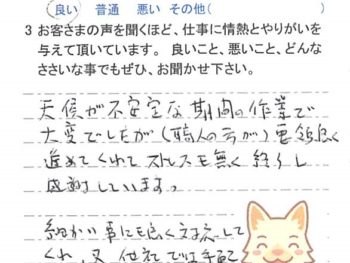 良い 普通 悪い その他( )
3 お客さまの声を聞くほど、仕事に情熱とやりがいを
与えて頂いています。 良いこと、悪いこと、どんな
ささいな事でもぜひ、お聞かせ下さい。
天候が不安定な期間の作業で
大変でしたが(職人の方が)要領良く
進めてくれてストレスも無く終了し
感謝しています。
細かい事にも良く対応して
くれ、又 他社では手配